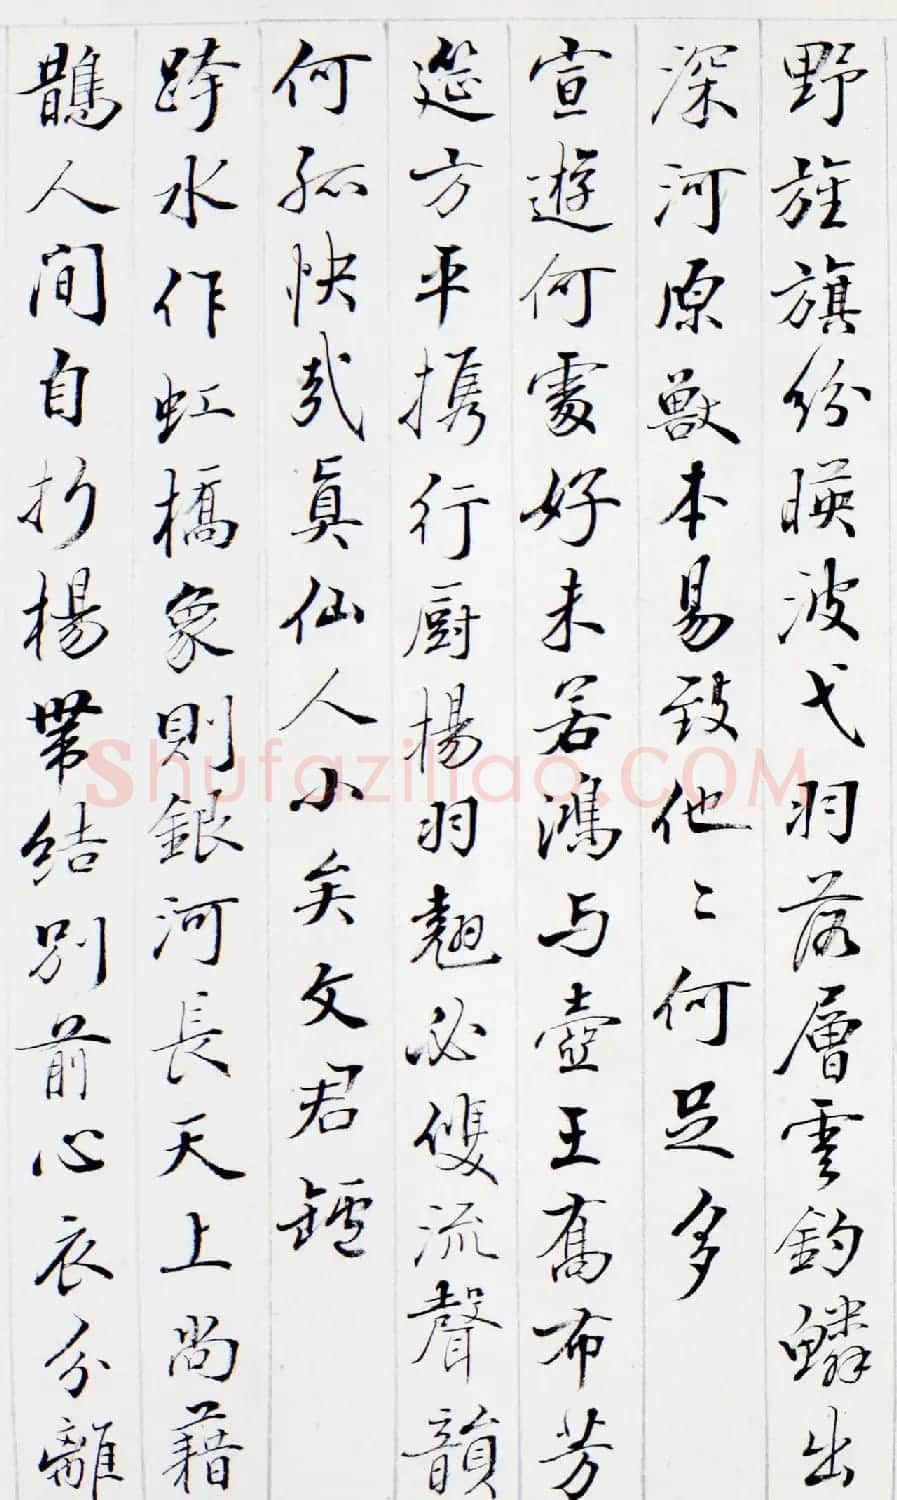 野旌旗份暎波弋羽落層雲釣鱗出
深河原獸本易致他〻何足多
宣遊何處好未若鴻与壺王喬布芳
筵方平携行厨楊羽翹必雙流聲韻
何孤快哉真仙人小矣文君鑪
跨水作虹橋象則銀河長天上尚藉
鵲人間自折楊帶結別前心衣分離
Shufaziliao.COM